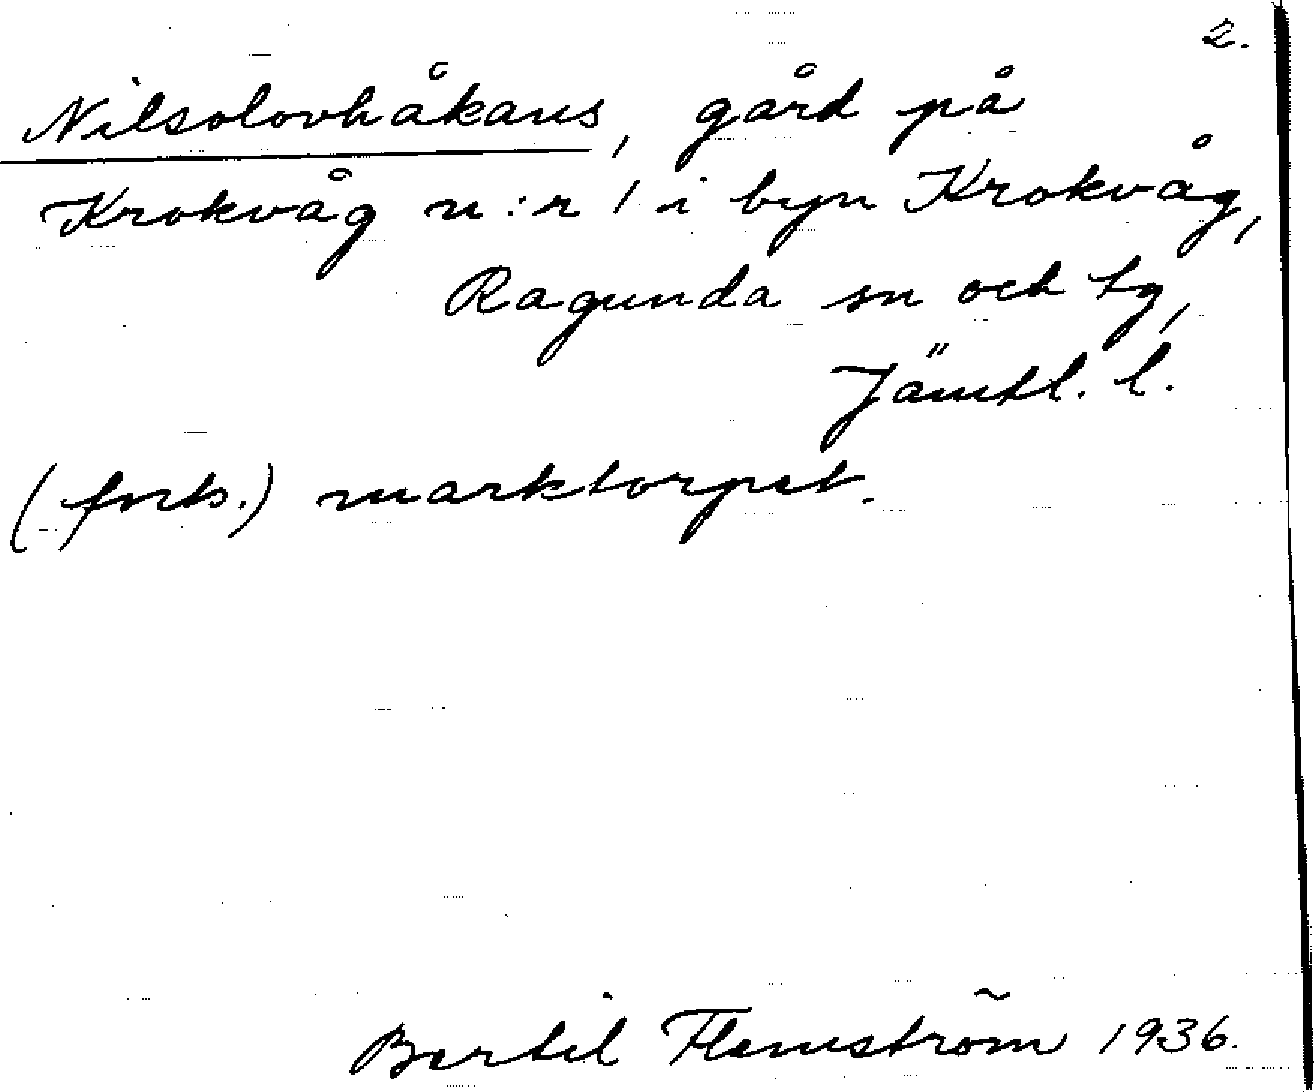 2.
Nilsolovhåkans, gård på
Krokvåg n:r 1 i byn Krokvåg,
Ragunda sn och tg,
Jämtl. l.
(forts.) marktorpet.
Bertil Flemström 1936.